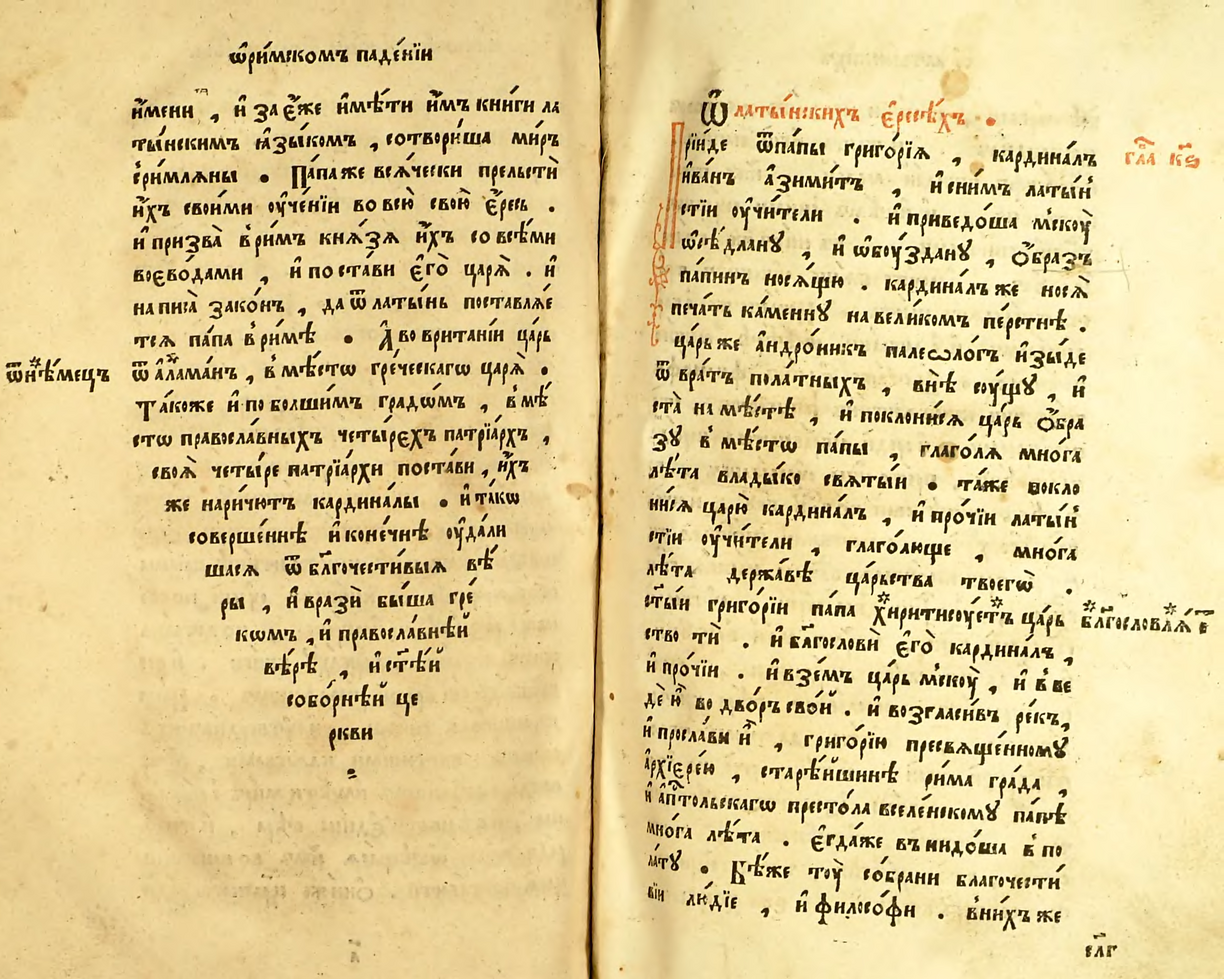 ѡ҆ри́мскомъ паде́нїи
и҆́мени , и҆ за є҆́же и҆мѣ́ти и҆̀мъ кни́ги ла
ты́нскимъ ꙗ҆зы́комъ , сотвори́ша ми́ръ
с̾ри́млѧны . Па́па же всѧ́чески прельстѝ
и҆́хъ свои́ми ᲂу҆че́нїи во всю̀ свою̀ є҆́ресь .
и҆ призва̀ в̾ри́мъ кнѧ́зѧ и҆́хъ со всѣ́ми
воєво́дами , и҆ поста́ви є҆го̀ царѧ̀ . и҆
написа̀ зако́нъ , да ѿ латы́нь поставлѧ́е
тсѧ па́па в̾ри́мѣ . А҆ во врита́нїи ца́рь
ѿнѣ́мецъ
ѿ а҆лама́нъ , в̾ мѣ́стѡ гре́ческагѡ царѧ̀ .
та́коже и҆ по болши́мъ градѡ́мъ , в̾ мѣ́
стѡ правосла́вныхъ четы́рехъ патрїа́рхъ ,
своѧ̀ четы́ре патрїа́рхи поста́ви , и҆́хъ
же нарича́ютъ кардина́лы . и҆ та́кѡ
соверше́ннѣ и҆ коне́чнѣ ᲂу҆дали́
шасѧ ѿ бл҃гочести́выѧ вѣ́
ры , и҆ врази̂ бы́ша гре́
кѡмъ , и҆ правосла́внѣй
вѣ́рѣ , и҆ ст҃ѣ́й
собо́рнѣй це
ркви
Ѿ латы́нскихъ є҆́ресѣхъ .
Прїи́де ѿпа́пы григо́рїѧ , кардина́лъ
гла̑ к҃ѕ
и҆ва́нъ а҆зими́тъ , и҆ сни́мъ латы́н
стїи ᲂу҆чи́тели . и҆ приведо́ша мско́у
ѡ҆сѣ́длану , и҆ ѡ҆боу́здану , о҆́бразъ
па́пинъ носѧ́щю . кардина́лъ же носѧ̀
печа́ть ка́менну на вели́комъ пе́рстнѣ .
ца́рь же а҆ндро́никъ палеѡло́гъ и҆зы́де
ѿ вра́тъ пола́тныхъ , внѣ̀ су́щу , и҆
ста̀ на мѣ́стѣ , и҆ поклони́сѧ ца́рь о҆́бра
зу в̾ мѣ́стѡ па́пы , глаго́лѧ мно́га
лѣ́та влады́ко свѧты́и . та́же покло
ни́сѧ царю̀ кардина́лъ , и҆ про́чїи латы́н
стїи ᲂу҆чи́тели , глаго́люще , мно́га
лѣ́та держа́вѣ ца́рьства твоегѡ̀ .
ст҃ы́и григо́рїи па́па хиритисоуе́тъ ца́рь
бл҃гословлѧ́етъ
ство тѝ . и҆ бл҃гословѝ є҆го̀ кардина́лъ ,
и҆ про́чїи . и҆ взе́мъ ца́рь мско́у , и҆ в̾ве
дѐ и҆̀ во дво́ръ сво́й . и҆ возгласи́въ ре́къ,
и҆ просла́ви и҆̀ , григо́рїю пресвѧще́нному
а҆рхїере́ю , старѣ́йшинѣ ри́ма гра́да ,
и҆ а҆п҇тольскагѡ престо́ла вселе́нскому па́пѣ
мно́га лѣ́та . є҆гда́же въ нидо́ша в̾ по
ла́ту . Бѣ́же тоу̀ со́брани благочести́
вїи лю́дїе , и҆ филосо́фи . в̾ни́хъ же
сл҃г